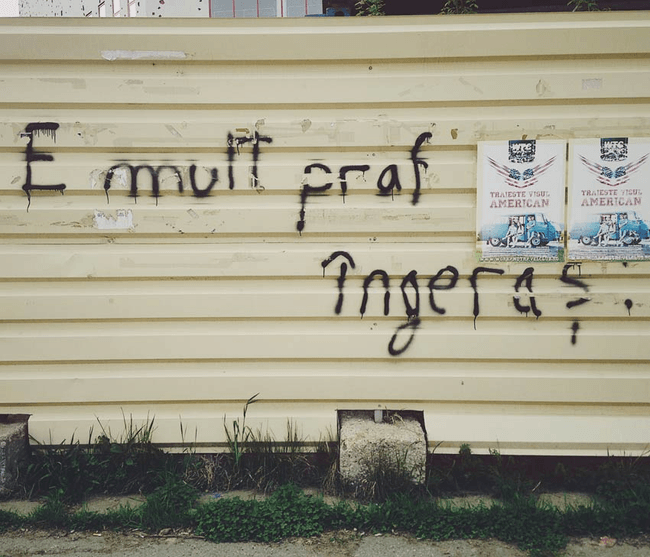 E mult praf
îngeraș.
WTC
TRĂIEȘTE VISUL
AMERICAN
WTC
TRĂIEȘTE VISUL
AMERICAN